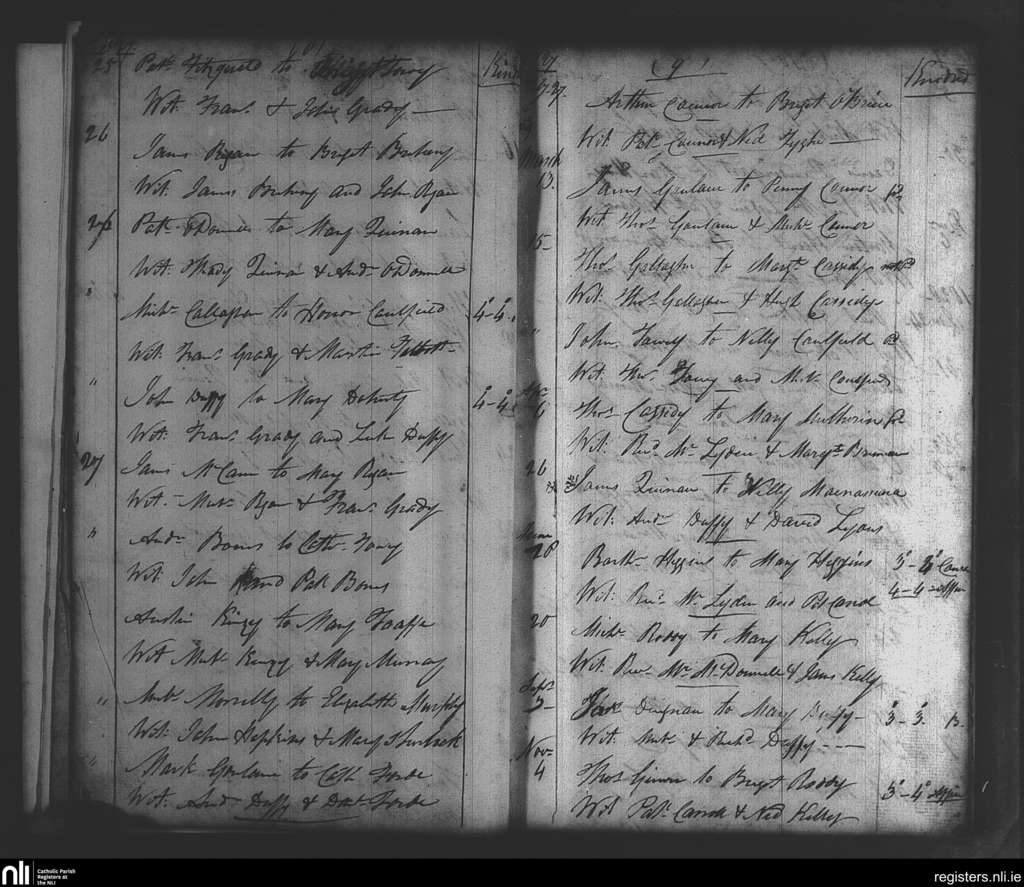 25 Patk. Fitzgerald to Bridgt Towey
Wit. Frans. & John Grady
26
James Ryan to Briget Breheny
Wit. James Breheny and John Ryan
Patk. O'Donnell to Mary Quinan
Wit. Thady Quinan & Andw. O'Donnell
" Michl. Callaghan to Honor Caulfield 4-4
Wit. Frans. Grady & Martin
" John Duffy to Mary Doherty 4-4
Wit. Frans. Grady and Luke Duffy
27 James McCann to Mary Ryan
Wit. Michl. Ryan & Frans. Grady
" Andw. Bones to Cath. Towey
Wit. John and Pat Bones
Austin to Mary Taaffe
Wit Michl. & Mary Murray
" Michl. Morrelly to Elizabeth Murphy
Wit. John Hopkins & Mary
" Mark Goulane to Cath Forde
Wit. Andw. Duffy & Forde
Kindred
27. Arthur Connor to Briget O'Brien
Wit. Patk. Connor & Ned Tyghe
March
13. James Goulane to Penny Connor
Wit. Thos. Goulane & Michl. Connor
15 Thos. Gallagher to Margt. Cassidy
Wit. Thos. Gallagher & Hugh Cassidy
" John Towey to Nelly Caulfield
Wit. Thos. Towey and Michl. Caulfield
6 Thos. Cassidy to Mary
Wit. Revd. Mr. Lyden & Margt. Brennan
26 James Quinan to Nelly Macnamara
Wit. Andw. Duffy & David Lyons
June
20 Barthw. Higgins to Mary Higgins 3-
Wit. Revd. Mr. Lyden and Pat Cand 4-4 affin
20 Michl. Roddy to Mary Kelly
Wit. Revd. Mr. McDonnell & James Kelly
Sept.
3 Duignan to Mary Duffy 3-3
Wit. Michl. & Richd. Duffy
Nov.
4 Thos. to Briget Roddy 3-4 affin
Wit Patk. Carroll & Ned Kelly
nli
Catholic Parish
Registers at
the NLI
registers.nli.ie